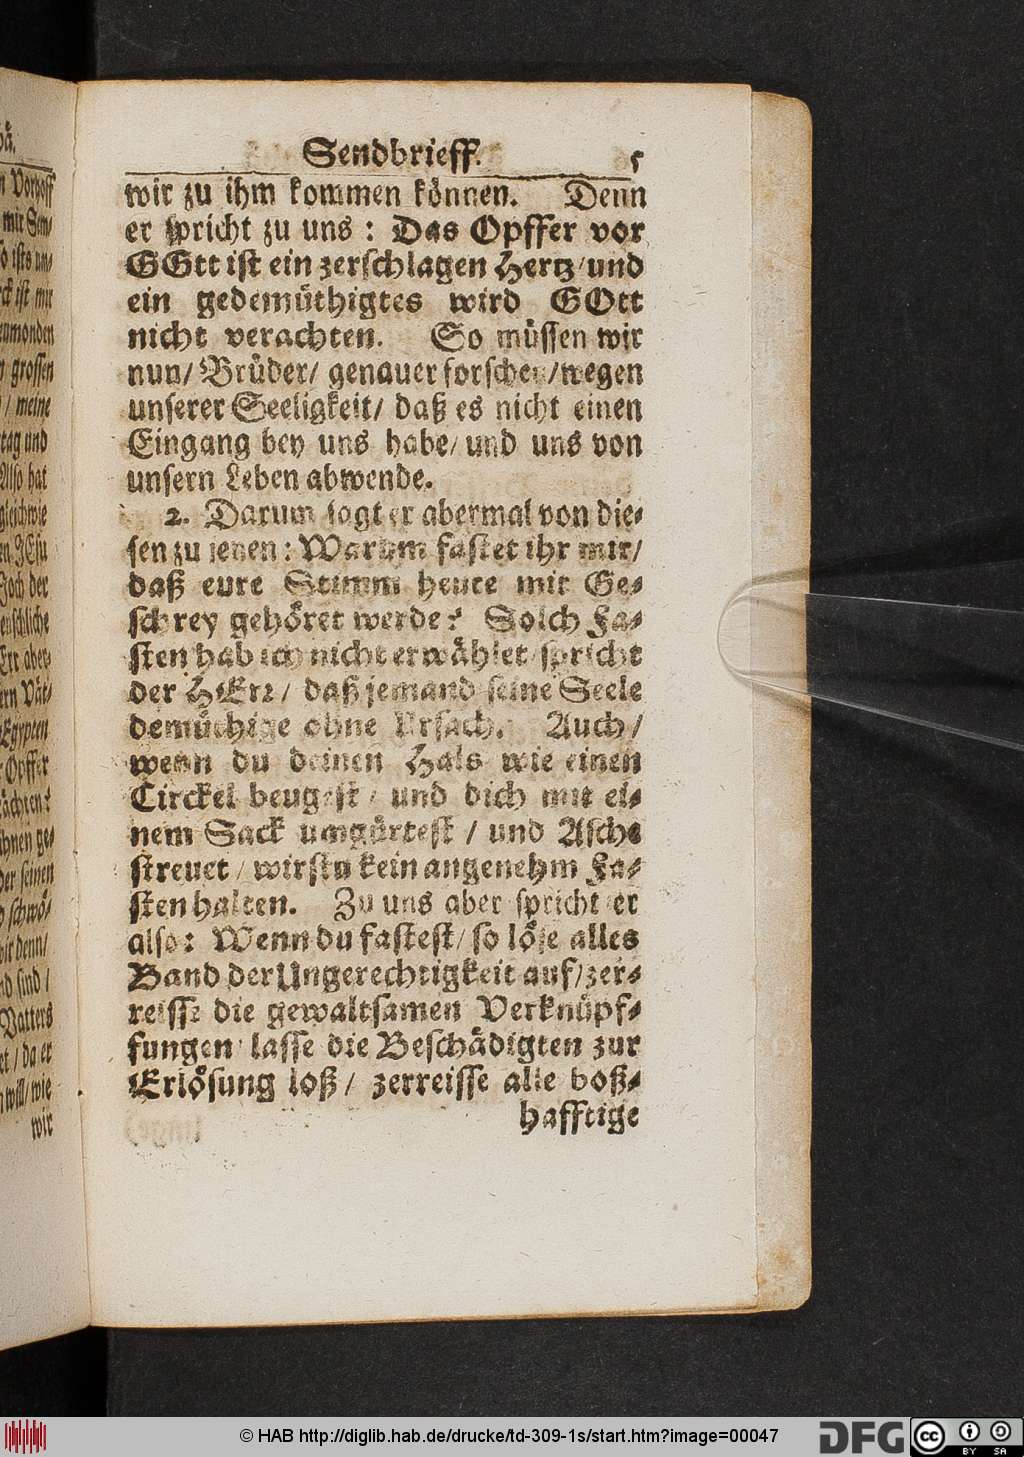 Sendbrieff. 5
wir zu ihm kommen können. Denn
er spricht zu uns : Das Opffer vor
GOtt ist ein zerschlagen Hertz/und
ein gedemüthigtes wird GOtt
nicht verachten. So müssen wir
nun/ Brüder/ genauer forschen/wegen
unserer Seeligkeit/ daß es nicht einen
Eingang bey uns habe/ und uns von
unsern Leben abwende.
2. Darum sagt er abermal von die-
sen zu jenen : Warum fastet ihr mir/
daß eure Stimm heute mit Ge-
schrey gehöret werde? Solch Fa-
sten hab ich nicht erwählet/spricht
der HErr/ daß jemand seine Seele
demüthige ohne Ursach. Auch/
wenn du deinen Hals wie einen
Circkel beugest/ und dich mit ei-
nem Sack umgürtest / und Asche
streuet/ wirstu kein angenehm Fa-
sten halten. Zu uns aber spricht er
also: Wenn du fastest/ so löse alles
Band der Ungerechtigkeit auf/zer-
reisse die gewaltsamen Verknüpf-
fungen/ lasse die Beschädigten zur
Erlösung loß/ zerreisse alle boß-
hafftige
n Vorhoff
mit
so ists un-
ist mir
eumonden
grossen
/ meine
tag und
Also hat
gleichwie
en JEsu
Joch der
enschliche
Err aber-
ern Vät-
Egypten
Opffer
ihnen ge-
der seinen
schwö-
denn/
nd sind/
Vatters
et/ da er
will/ wie
wir
© HAB http://diglib.hab.de/drucke/td-309-1s/start.htm?image=00047
DFG
cc BY SA